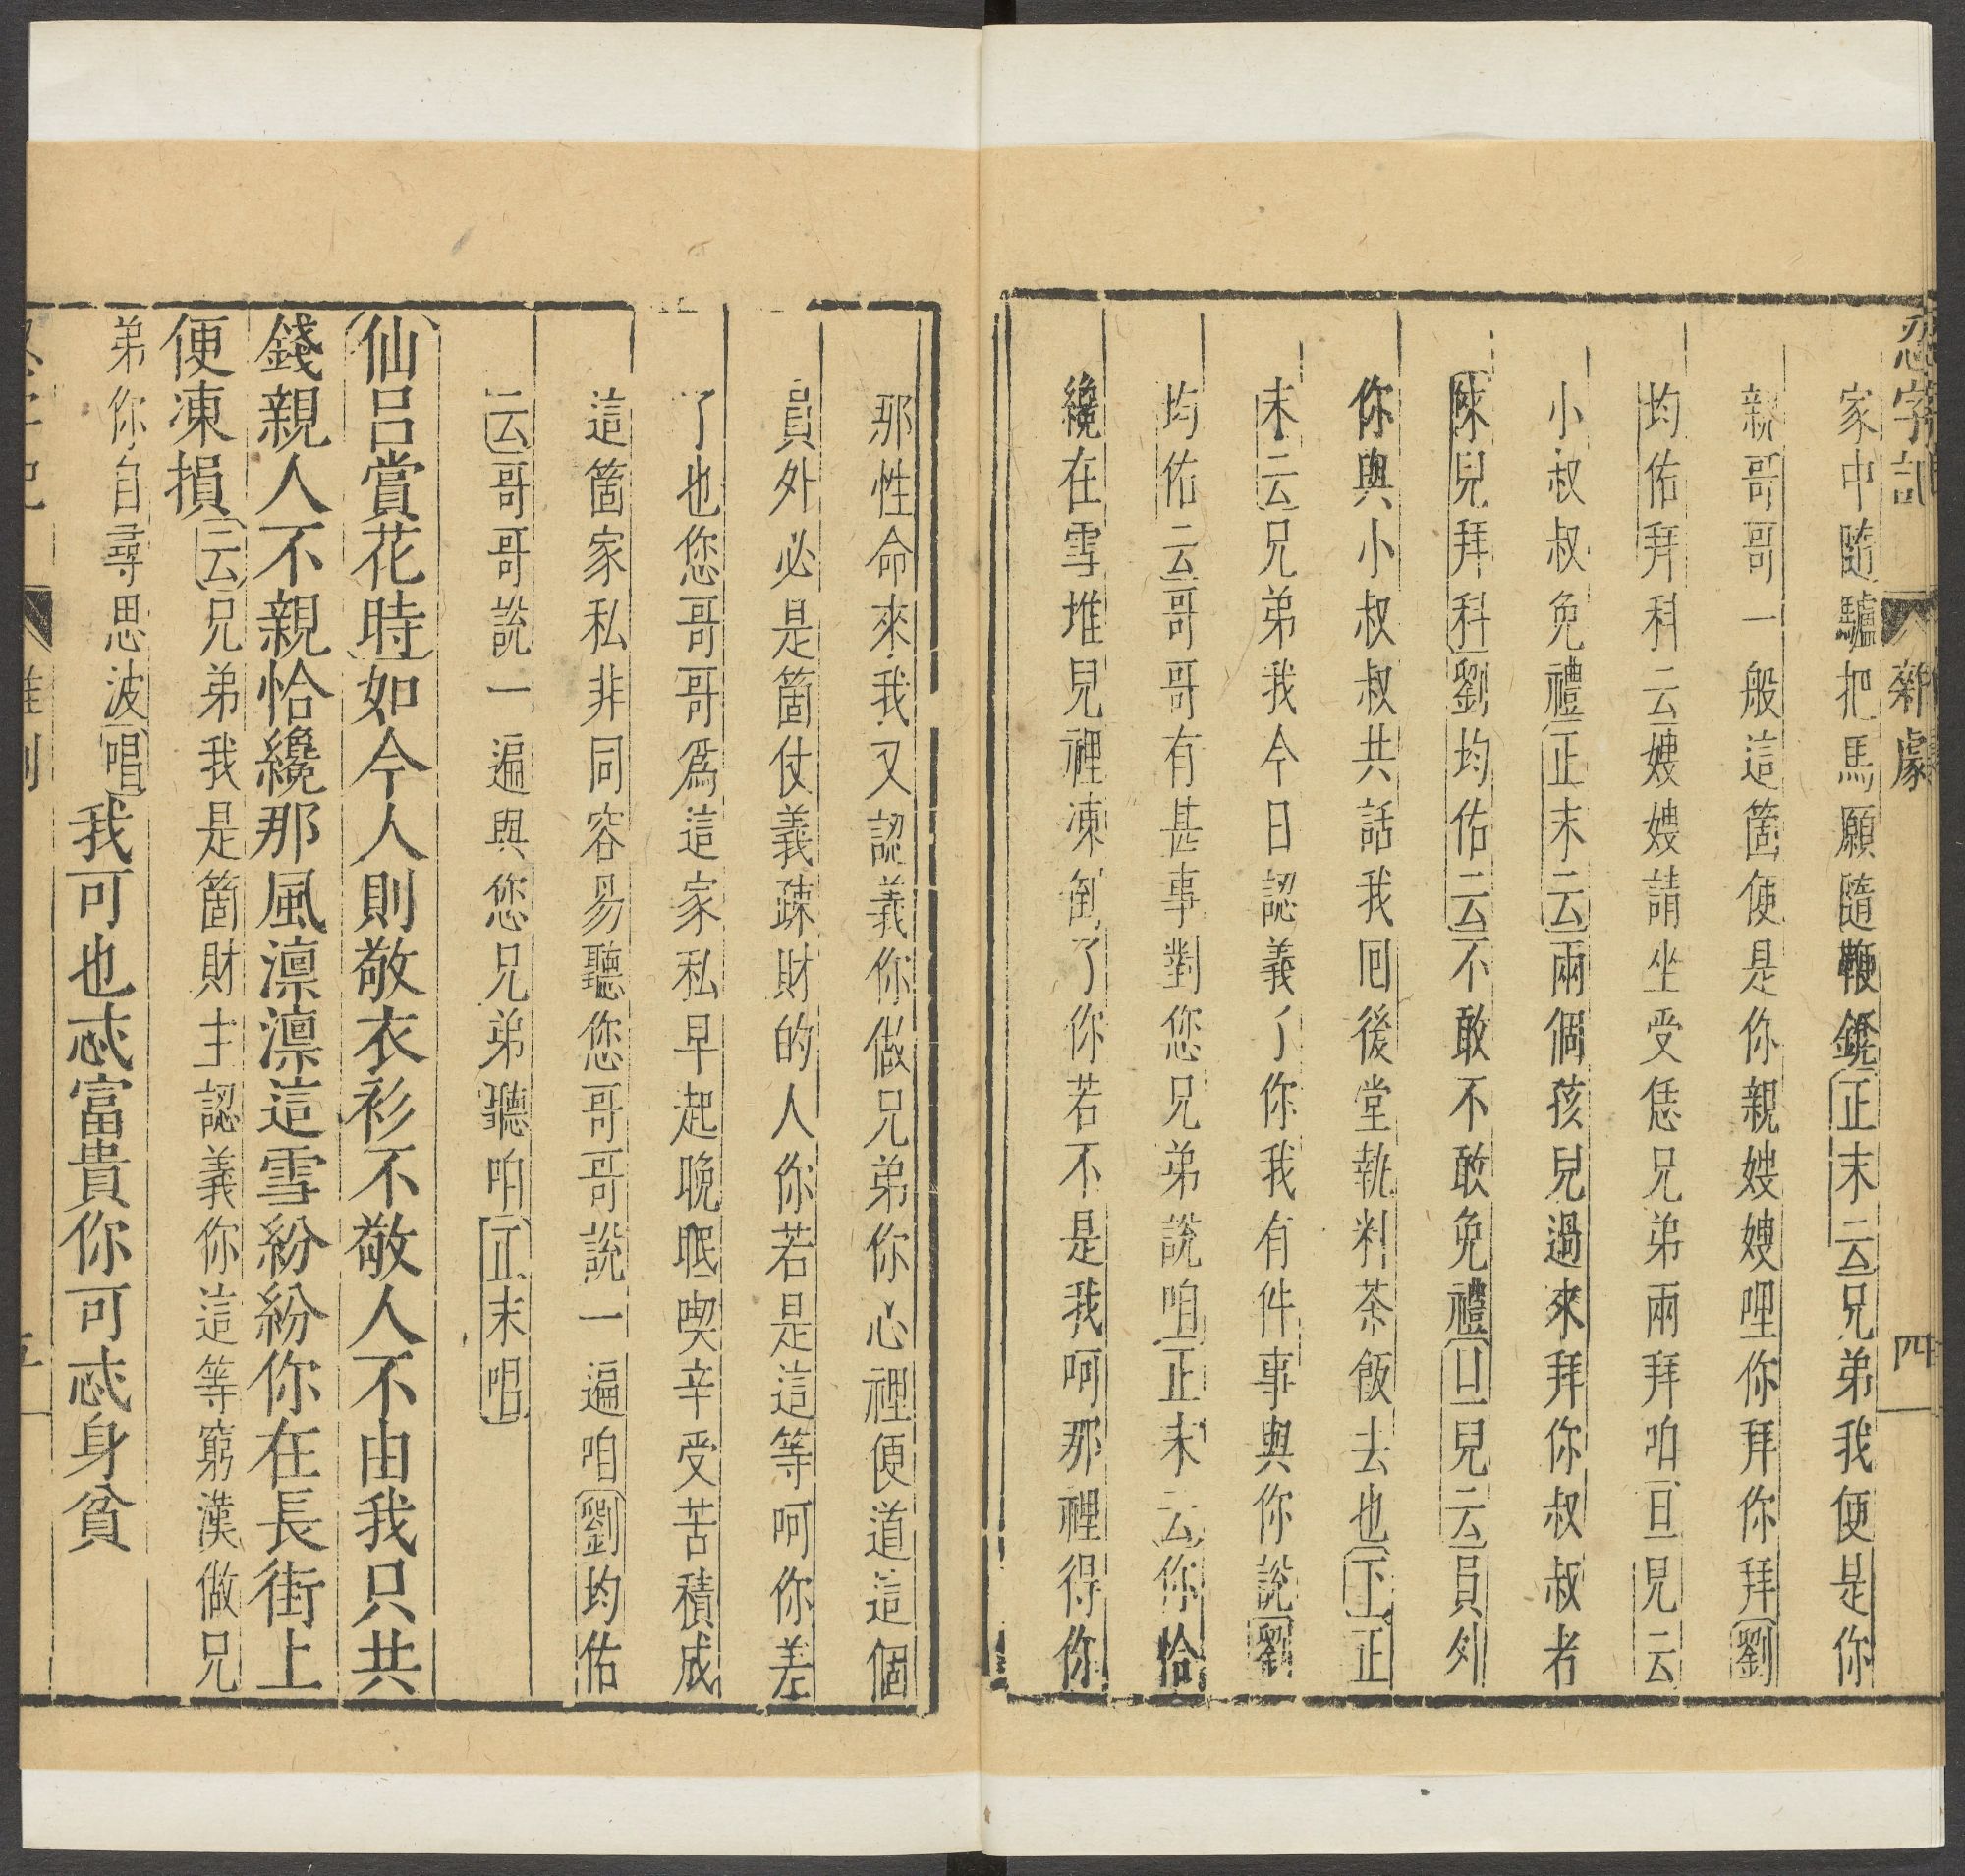 忍字記 雜劇 四
家中隨驢把馬願隨鞭鐙正末云兄弟我便是你
親哥哥一般這箇便是你親嫂嫂哩你拜你拜劉
均佑拜科云嫂嫂請坐受恁兄弟兩拜咱旦見云
小叔叔免禮正末云兩個孩兒過來拜你叔叔者
俫兒拜科劉均佑云不敢不敢免禮旦兒云員外
你與小叔叔共話我囘後堂執料茶飯去也下正
末云兄弟我今日認義了你我有件事與你說劉
均佑云哥哥有甚事對您兄弟說咱正末云你恰
纔在雪堆兒裡凍倒了你若不是我呵那裡得你
那性命來我又認義你做兄弟你心裡便道這個
員外必是箇仗義疎財的人你若是這等呵你差
了也您哥哥爲這家私早起晚眠喫辛受苦積成
這箇家私非同容易聽您哥哥說一遍咱劉均佑
云哥哥說一遍與您兄弟聽咱正末唱
仙呂賞花時如今人則敬衣衫不敬人不由我只共
錢親人不親恰纔那風凛凛這雪紛紛你在長街上
便凍損云兄弟我是箇財主認義你這等窮漢做兄
弟你自尋思波唱我可也忒富貴你可忒身貧